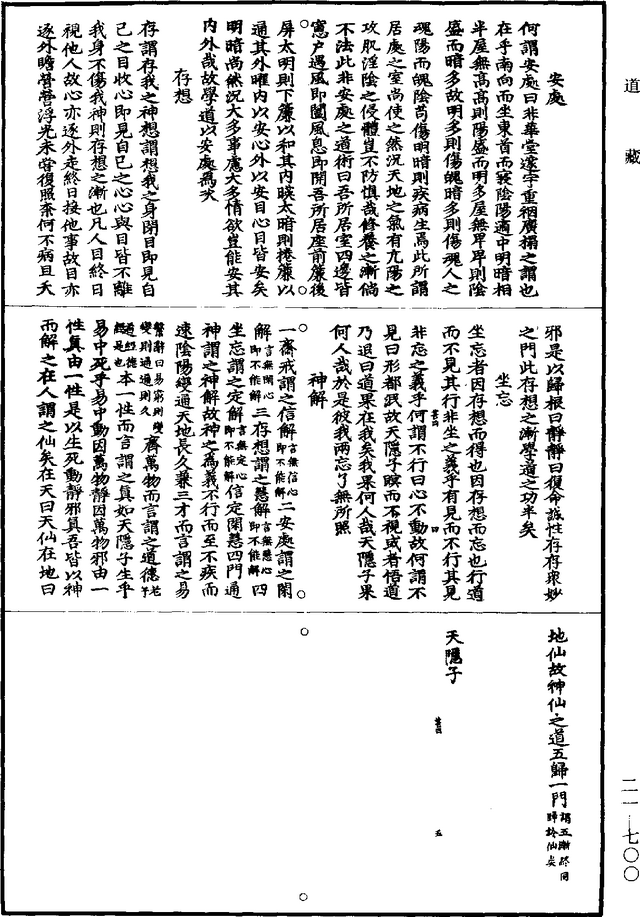 道藏
安處
何謂安處曰非華堂邃宇重裀廣榻之謂也
在乎南向而坐東首而寢陰陽適中明暗相
半屋無高高則陽盛而明多屋無卑卑則陰
盛而暗多故明多則傷魄暗多則傷魂人之
魂陽而魄陰苟傷明暗則疾病生焉此所謂
居處之室尚使之然況天地之氣有亢陽之
攻肌淫陰之侵體豈不防慎哉修養之漸倘
不法此非安處之道術曰吾所居室四邊皆
窻户遇風即闔風息即開吾所居座前簾後
屏太明則下簾以和其内暎太暗則捲簾以
通其外曜内以安心外以安目心目皆安矣
明暗尚然況大多事慮大多情欲豈能安其
内外哉故學道以安處為次
存想
存謂存我之神想謂想我之身閉目即見自
己之目收心即見自己之心心與目皆不離
我身不傷我神則存想之漸也凡人目終日
視他人故心亦逐外走終日接他事故目亦
逐外瞻營營浮光未甞復照柰何不病且夭
邪是以歸根曰靜靜曰復命誠性存存衆妙
之門此存想之漸學道之功半矣
坐忘
坐忘者因存想而得也因存想而忘也行道
而不見其行非坐之義乎有見而不行其見
非忘之義乎何謂不行曰心不動故何謂不
見曰形都泯故天隱子瞑而不視或者悟道
乃退曰道果在我矣我果何人哉天隱子果
何人哉於是彼我兩忘了無所照
神解
一齋戒謂之信解言無信心即不能解二安處謂之閑
解言無閑心即不能解三存想謂之慧解言無慧心即不能解四
坐忘謂之定解言無定心即不能解信定閑慧四門通
神謂之神解故神之為義不行而至不疾而
速陰陽變通天地長久兼三才而言謂之易
繫辭曰易窮則變變則通通則久齊萬物而言謂之道德老子
道經德經是也本一性而言謂之真如天隱子生乎
易中死乎易中動因萬物靜因萬物邪由一
性真由一性是以生死動靜邪真吾皆以神
而解之在人謂之仙矣在天曰天仙在地曰
地仙故神仙之道五歸一門謂五漸終同歸於仙矣
天隱子
二一—七〇〇